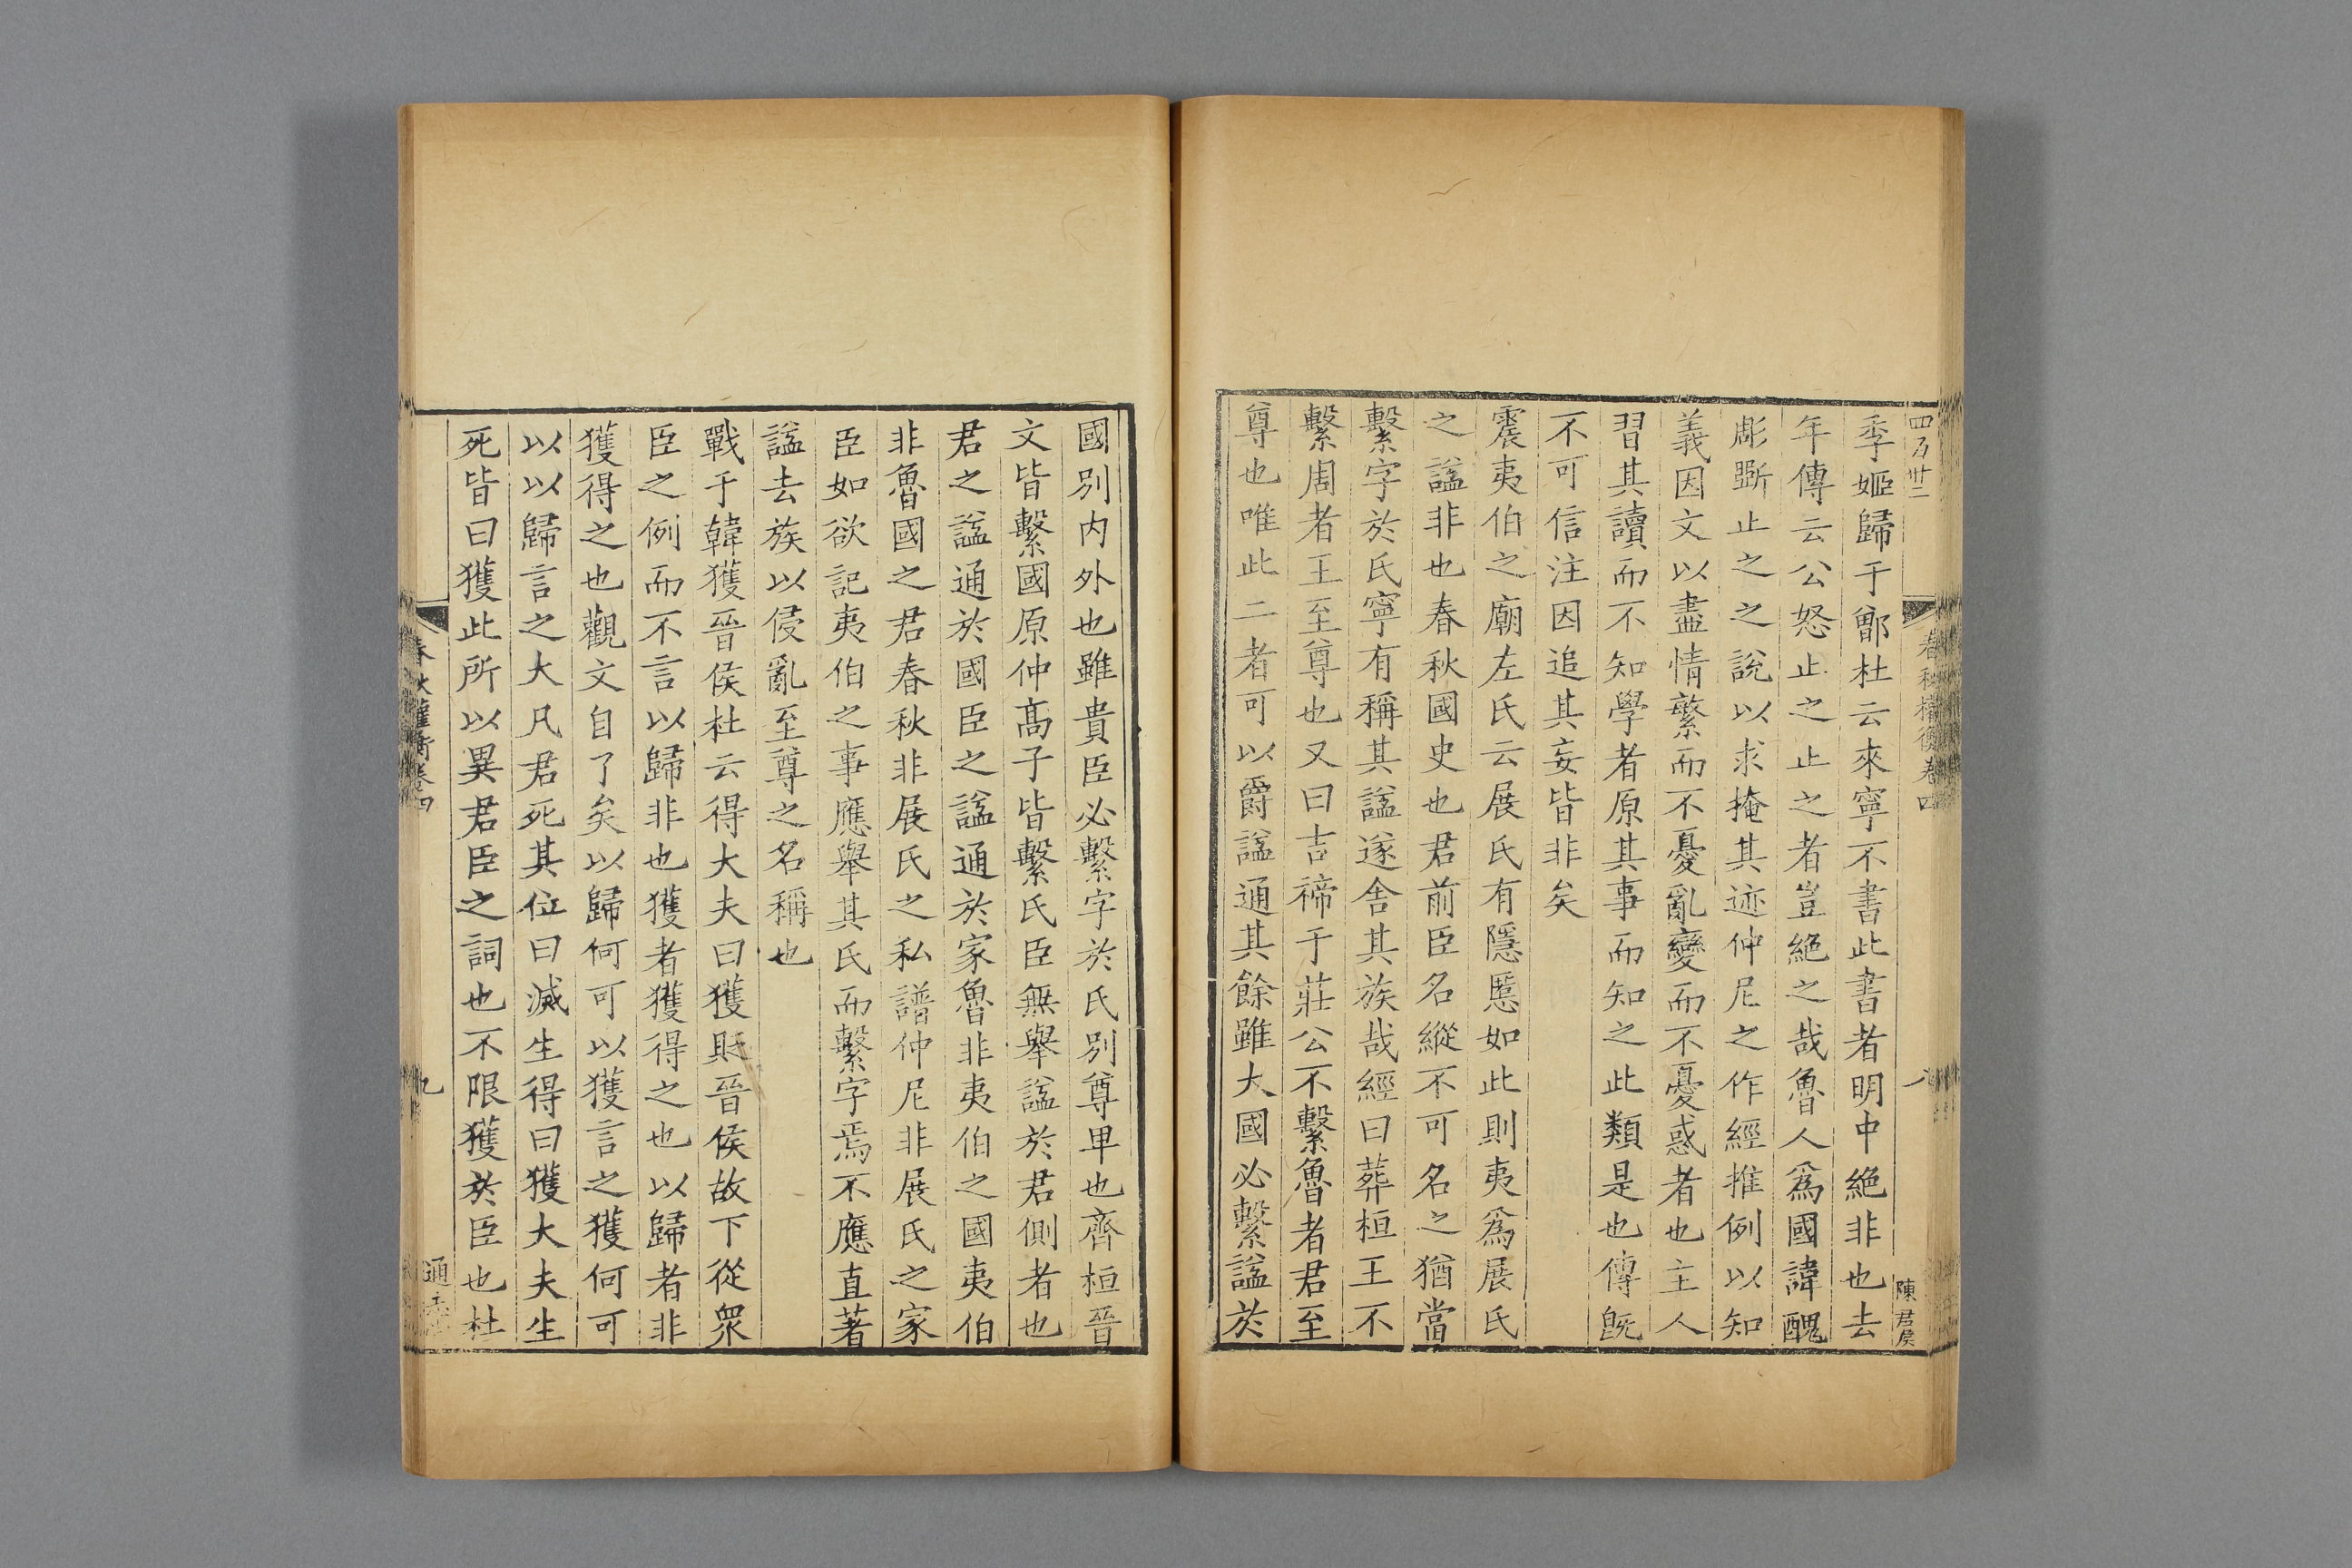 四百廿二
春秋權衡卷四
八
陳君矦
季姬歸于鄫杜云來寧不書此書者明中絕非也去
年傳云公怒止之止之者豈絕之哉魯人爲國諱醜
彫斵止之之說以求掩其迹仲尼之作經推例以知
義因文以盡情繁而不憂亂變而不憂惑者也主人
習其讀而不知學者原其事而知之此類是也傳旣
不可信注因追其妄皆非矣
震夷伯之廟左氏云展氏有隱慝如此則夷爲展氏
之諡非也春秋國史也君前臣名縱不可名之猶當
繫字於氏寧有稱其諡遂舍其族哉經曰葬桓王不
繫周者王至尊也又曰吉禘于莊公不繫魯者君至
尊也唯此二者可以爵諡通其餘雖大國必繫諡於
國別内外也雖貴臣必繫字於氏別尊卑也齊桓晉
文皆繫國原仲髙子皆繫氏臣無舉諡於君側者也
君之諡通於國臣之諡通於家魯非夷伯之國夷伯
非魯國之君春秋非展氏之私譜仲尼非展氏之家
臣如欲記夷伯之事應舉其氏而繫字焉不應直著
諡去族以侵亂至尊之名稱也
戰于韓獲晉侯杜云得大夫曰獲貶晉侯故下從衆
臣之例而不言以歸非也獲者獲得之也以歸者非
獲得之也觀文自了矣以歸何可以獲言之獲何可
以以歸言之大凡君死其位曰滅生得曰獲大夫生
死皆曰獲此所以異君臣之詞也不限獲於臣也杜
春秋權衡卷四
九
通志